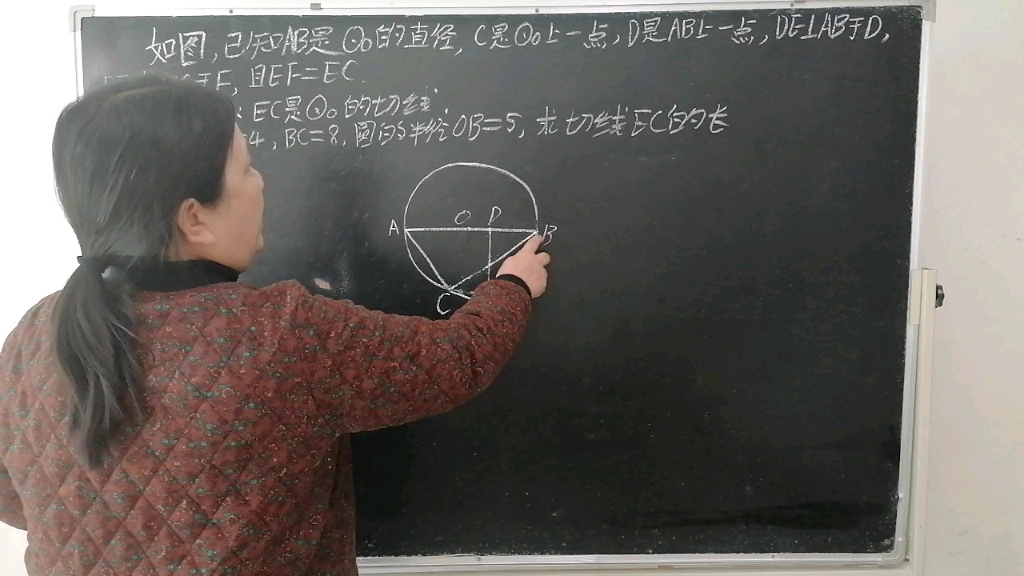 如图,已知AB是⊙O的直径,C是⊙O上一点,D是AB上一点,DE⊥AB于D,
于F,且EF=EC.
:EC是⊙O的切线
4,BC=8,圆的半径OB=5,求切线EC的长
A
O
D
B
C